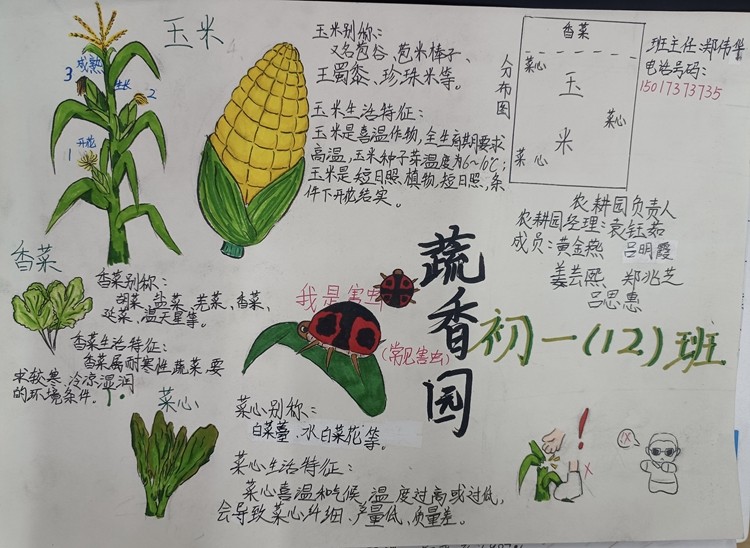 玉米
玉米别称：
又名苞谷、苞米棒子、
玉蜀黍、珍珠米等。
玉米生活特征：
玉米是喜温作物，全生育期要求
高温，玉米种子芽温度为6～10℃；
玉米是短日照植物，短日照，条
件下开花结实。
3
成熟
生长
2
开花
1
分布图
香菜
菜心
玉
菜心
米
菜心
班主任：郑伟华
电话号码：
15017373735
农耕园负责人
农耕园经理：袁钰茹
成员：黄金燕 吕明霞
姜芸熙 郑兆芝
吕思惠
香菜
香菜别称：
胡菜、盐菜、芫菜、香菜、
延菜、温天星等。
香菜生活特征：
香菜属耐寒性蔬菜，要
求较寒，冷凉湿润
的环境条件。
我是害虫
(常见害虫)
蔬香园
初一(12)班
菜心
菜心别称：
白菜薹、水白菜花等。
菜心生活特征：
菜心喜温和气候，温度过高或过低，
会导致菜心纤细、产量低、质量差。
！
X